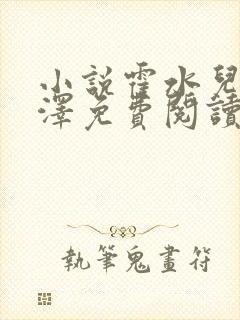 小說霍水兒
澤免費閱讀
執筆鬼畫符